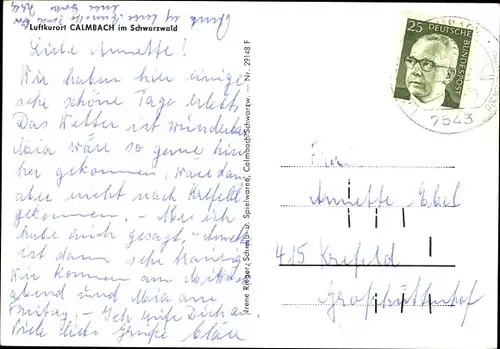 Luftkurort CALMBACH im Schwarzwald
Liebe Annette!
Wir haben hier einige
sehr schöne Tage erlebt.
Das Wetter ist wunderbar
Maia wäre so gerne hier
her gekommen, wäre dann
aber nicht nach Krefeld
gekommen. - Aber ich
habe auch gesagt, Annette
ist dann sehr traurig.
Wir kommen am
abend und Maia am
Freitag. - Ich rufe Dich an.
Viele liebe Grüße
Irene Rieger, Schreib- u. Spielwaren, Calmbach/Schwarzw. — Nr. 29148 F
25
DEUTSCHE
BUNDESPOST
7543
Annette Ebel
415 Krefeld
Großhüttenhof